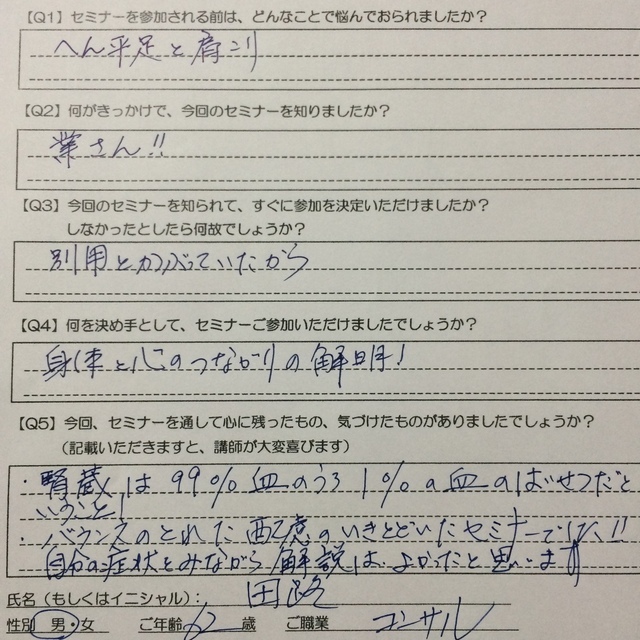 【Q1】セミナーを参加される前は、どんなことで悩んでおられましたか？
へん平足と肩こり
【Q2】何がきっかけで、今回のセミナーを知りましたか？
業さん!!
【Q3】今回のセミナーを知られて、すぐに参加を決定いただけましたか？
しなかったとしたら何故でしょうか？
別用とかぶっていたから
【Q4】何を決め手として、セミナーご参加いただけましたでしょうか？
身体と心のつながりの解明！
【Q5】今回、セミナーを通して心に残ったもの、気づけたものがありましたでしょうか？
（記載いただきますと、講師が大変喜びます）
・腎蔵は99%血のうち1%の血のはいせつだと
いうこと！
・バランスのとれた配慮のいきとどいたセミナーでした!!
自分の症状とみながら解説は、よかったと思います
氏名（もしくはイニシャル）： 田路
性別 男・女 ご年齢 62 歳 ご職業 コンサル